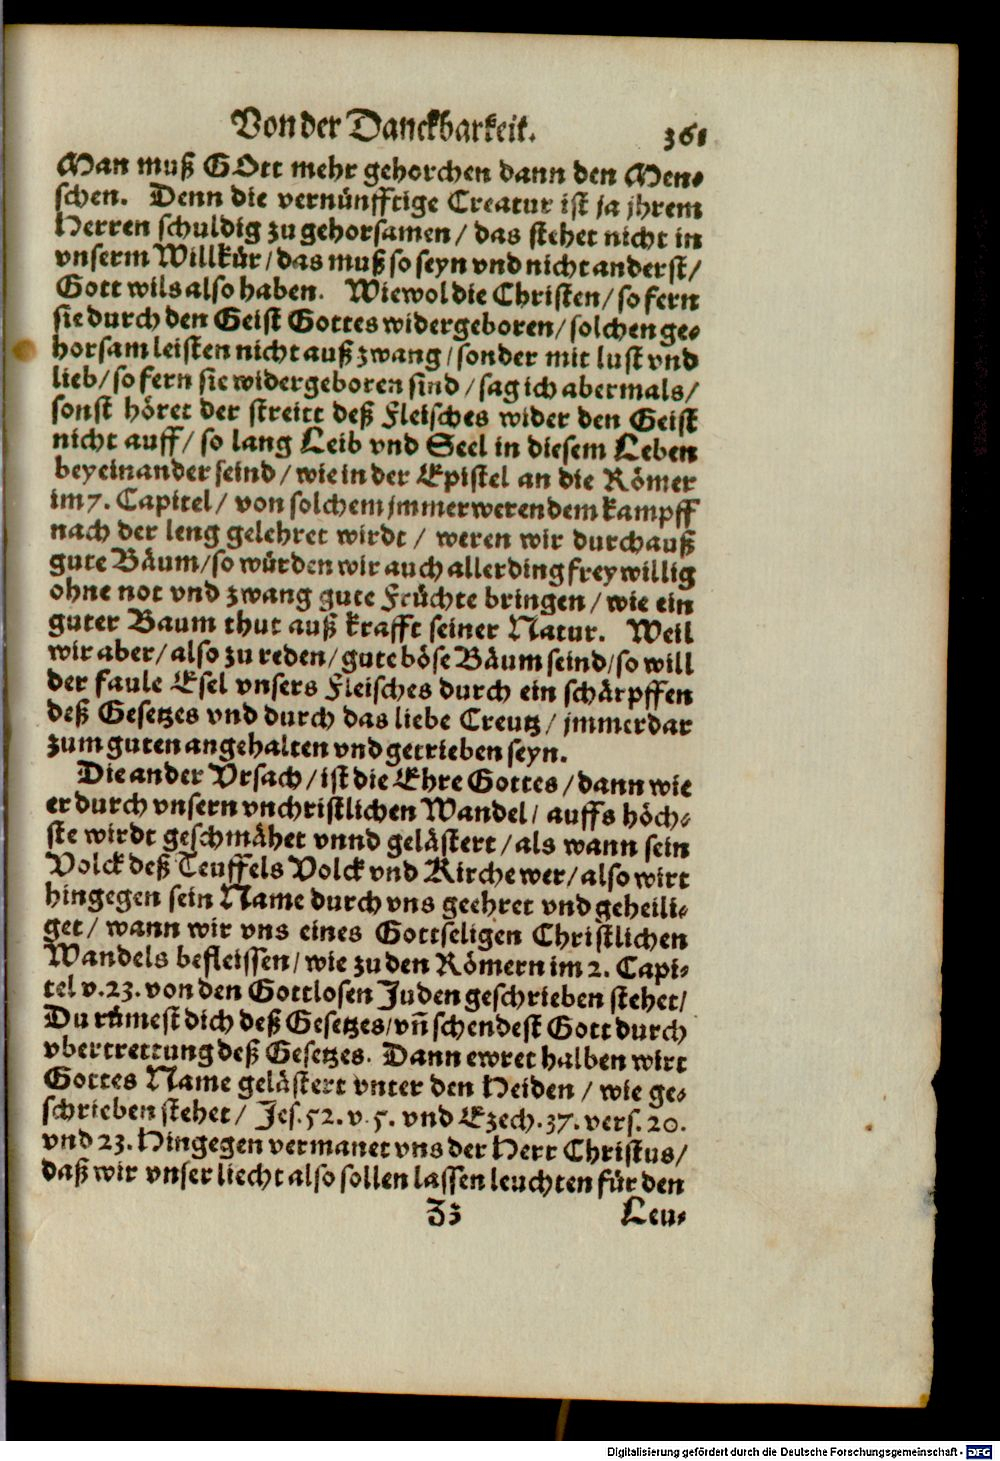 Von der Danckbarkeit. 361
Man muß GOtt mehr gehorchen dann den Men-
schen. Denn die vernünfftige Creatur ist ja jhrem
Herren schuldig zu gehorsamen / das stehet nicht in
vnserm Willkür / das muß so seyn vnd nicht anderst /
Gott wils also haben. Wiewol die Christen / so fern
sie durch den Geist Gottes widergeboren / solchen ge-
horsam leisten nicht auß zwang / sonder mit lust vnd
lieb / so fern sie widergeboren sind / sag ich abermals /
sonst höret der streitt deß Fleisches wider den Geist
nicht auff / so lang Leib vnd Seel in diesem Leben
beyeinander seind / wie in der Epistel an die Römer
im 7. Capitel / von solchem jmmerwerendem kampff
nach der leng gelehret wirdt / weren wir durchauß
gute Bäum / so würden wir auch allerding freywillig
ohne not vnd zwang gute Früchte bringen / wie ein
guter Baum thut auß krafft seiner Natur. Weil
wir aber / also zu reden / gute böse Bäum seind / so will
der faule Esel vnsers Fleisches durch ein schärpffen
deß Gesetzes vnd durch das liebe Creutz / jmmerdar
zum guten angehalten vnd getrieben seyn.
Die ander Vrsach / ist die Ehre Gottes / dann wie
er durch vnsern vnchristlichen Wandel / auffs höch-
ste wirdt geschmähet vnnd gelästert / als wann sein
Volck deß Teuffels Volck vnd Kirche wer / also wirt
hingegen sein Name durch vns geehret vnd geheili-
get / wann wir vns eines Gottseligen Christlichen
Wandels befleissen / wie zu den Römern im 2. Capi-
tel v. 23. von den Gottlosen Juden geschrieben stehet /
Du rümest dich deß Gesetzes / vñ schendest Gott durch
vbertrettung deß Gesetzes. Dann ewret halben wirt
Gottes Name gelästert vnter den Heiden / wie ge-
schrieben stehet / Jes. 52. v. 5. vnd Ezech. 37. vers. 20.
vnd 23. Hingegen vermanet vns der Herr Christus /
daß wir vnser liecht also sollen lassen leuchten für den
Zz Leu-
Digitalisierung gefördert durch die Deutsche Forschungsgemeinschaft - DFG